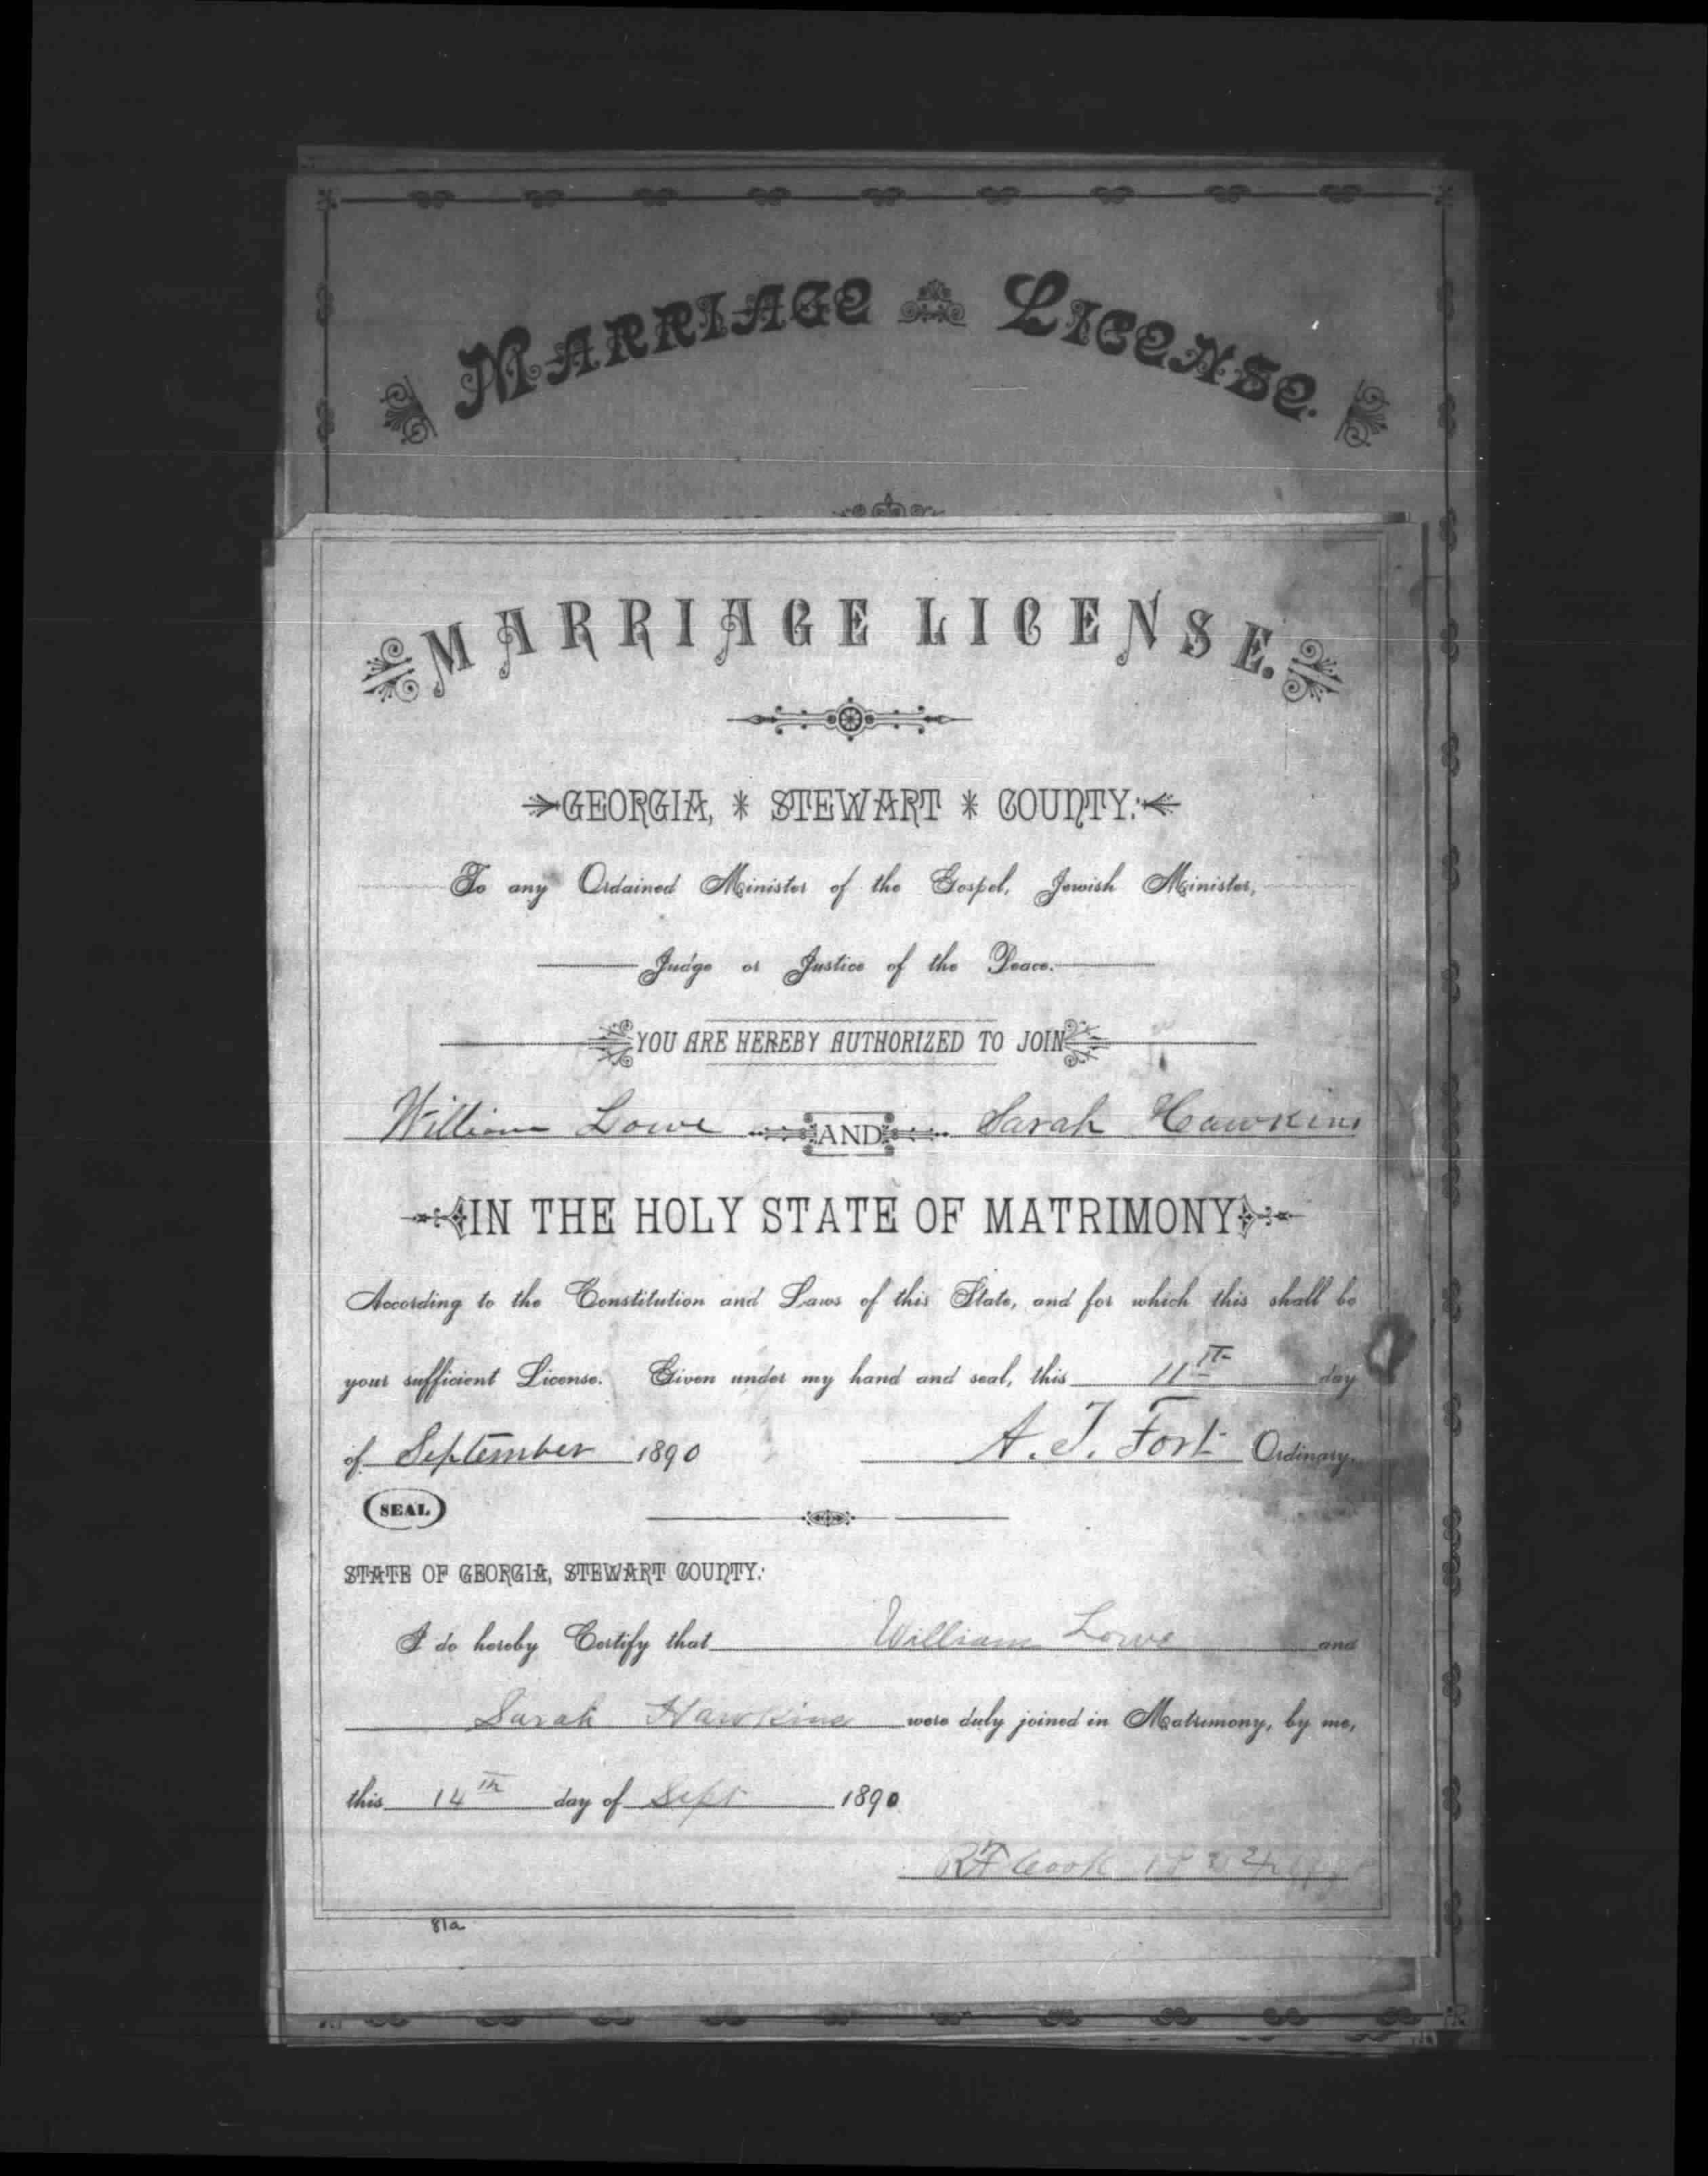 MARRIAGE LICENSE.
MARRIAGE LICENSE.
GEORGIA, * STEWART * COUNTY:
To any Ordained Minister of the Gospel, Jewish Minister,
Judge or Justice of the Peace.
YOU ARE HEREBY AUTHORIZED TO JOIN
William Lowe AND Sarah Hawkins
IN THE HOLY STATE OF MATRIMONY
According to the Constitution and Laws of this State, and for which this shall be
your sufficient License. Given under my hand and seal, this 11th day
of September 1890 A. T. Fort Ordinary.
SEAL
STATE OF GEORGIA, STEWART COUNTY:
I do hereby Certify that William Lowe and
Sarah Hawkins were duly joined in Matrimony, by me,
this 14th day of Sept 1890
R F Cook
81a